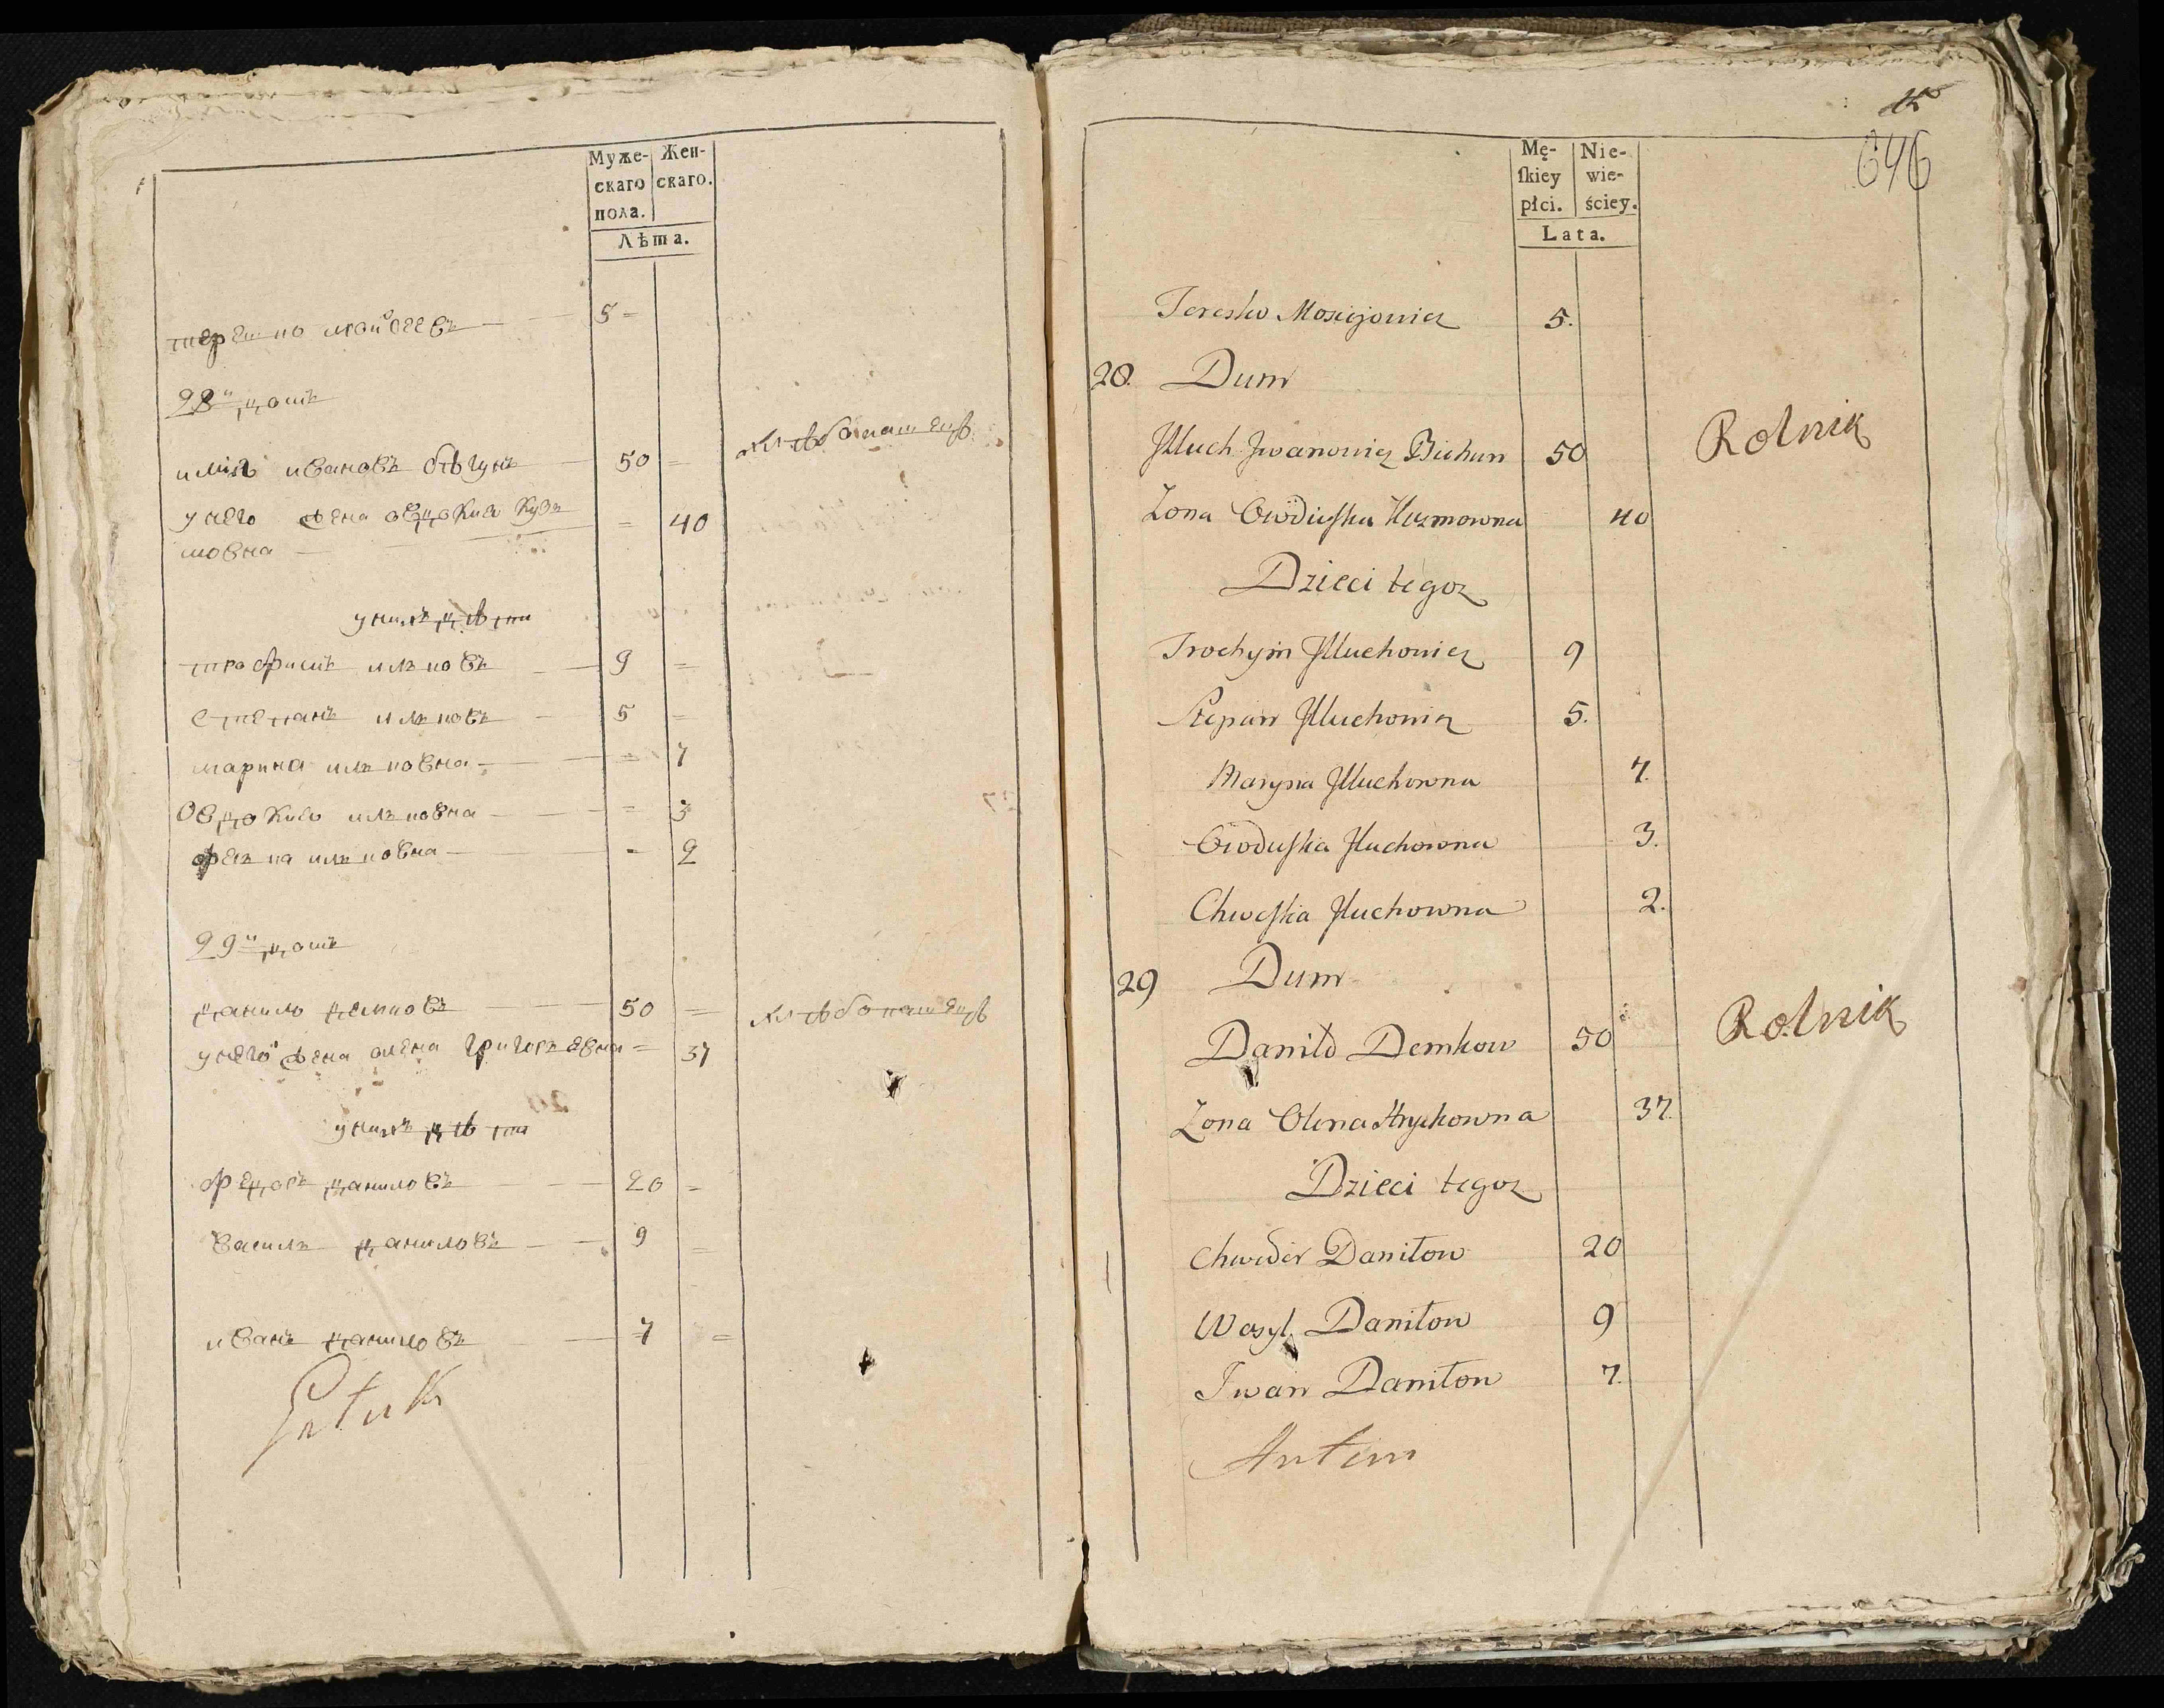 Муже-
скаго
пола.
Жен-
скаго.
Лѣта.
терешко мойсеевъ 5 =
28й домъ
илья ивановъ бѣгунъ 50 = хлѣбопашецъ
у него жена овдокия кузь = 40
мовна
у нихъ дѣти
трофимъ ильковъ 9 =
степанъ ильковъ 5 =
марина ильковна = 7
овдокия ильковна = 3
феська ильковна = 2
29й домъ
данило демковъ 50 = хлѣбопашецъ
у него жена олена григорьевна = 37
у нихъ дѣти
федоръ даниловъ 20 =
василь даниловъ 9 =
иванъ даниловъ 7 =
15
646
Mę-
skiey
płci.
Nie-
wie-
ściey.
Lata.
Teresko Mosiejowicz 5.
28. Dum
Illuch Jwanowicz Bichun 50 Rolnik
Zona Owdiuska Kuzmowna 40
Dzieci tegoz
Trochym Illuchowicz 9
Stepan Illuchowicz 5.
Maryna Illuchowna 7.
Owduska Iluchowna 3.
Chweska Iluchowna 2.
29 Dum
Daniło Demkow 50 Rolnik
Zona Olena Hryckowna 37.
Dzieci tegoz
Chwedir Daniłow 20
Wasyl Daniłow 9
Iwan Daniłow 7.